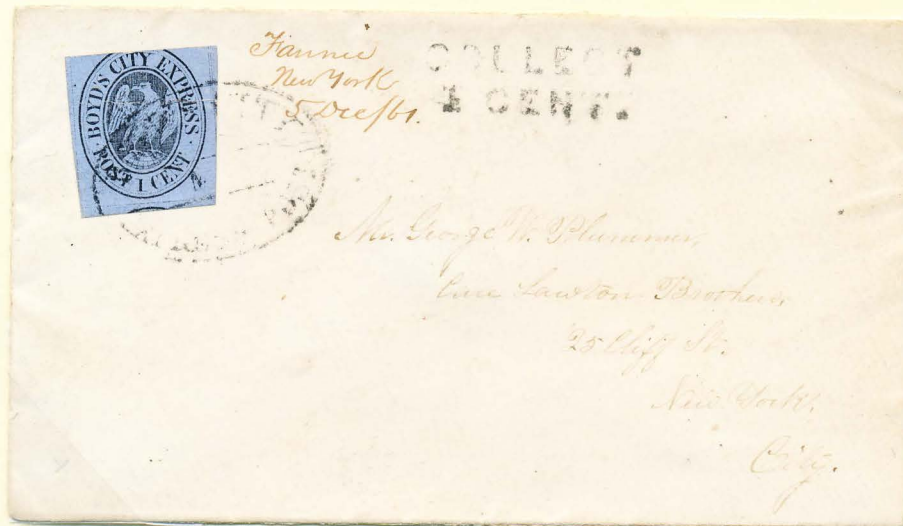 BOYD'S CITY EXPRESS
POST 1 CENT
Fannie
New York
5 Dec/61.
COLLECT
1 CENT.
Mr. George W. Plummer,
Care Lawton Brothers,
25 Cliff St.
New York.
City.